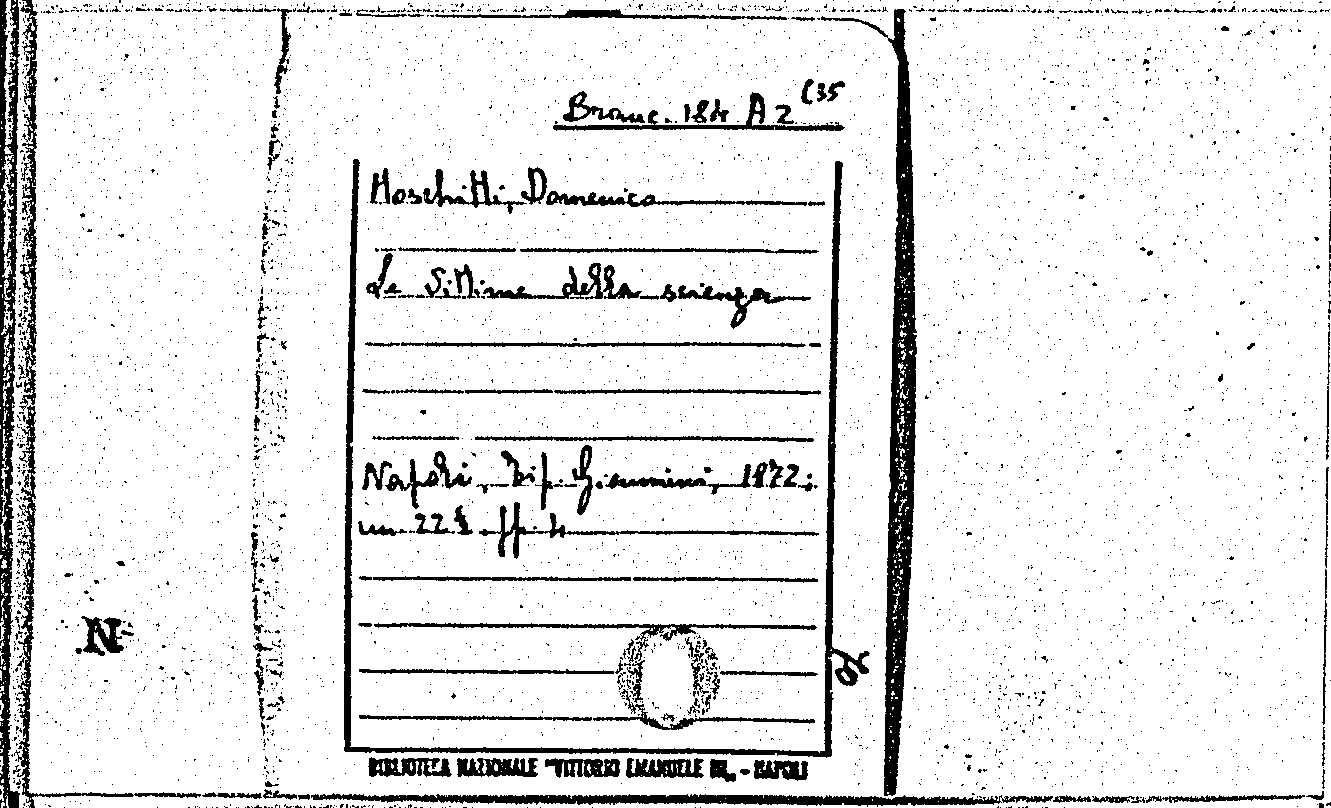 Branc. 184 A 2 (35
Moschitti, Domenico
Le Vittime della scienza
Napoli, Tip. Giannini, 1872;
in 22 . pp. 4
BIBLIOTECA NAZIONALE "VITTORIO EMANUELE III„ - NAPOLI
N